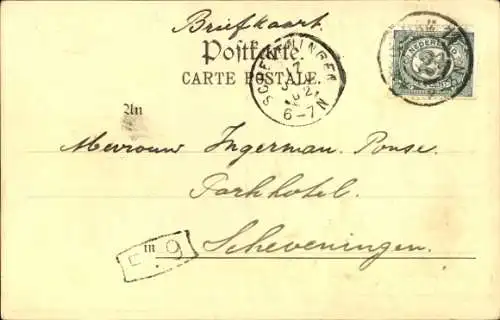 Briefkaart.
Postkarte.
CARTE POSTALE.
SCHEVENINGEN
6-7N
NEDERLAND
An
Mevrouw Ingerman. Ponse.
Parkhotel.
in Scheveningen.